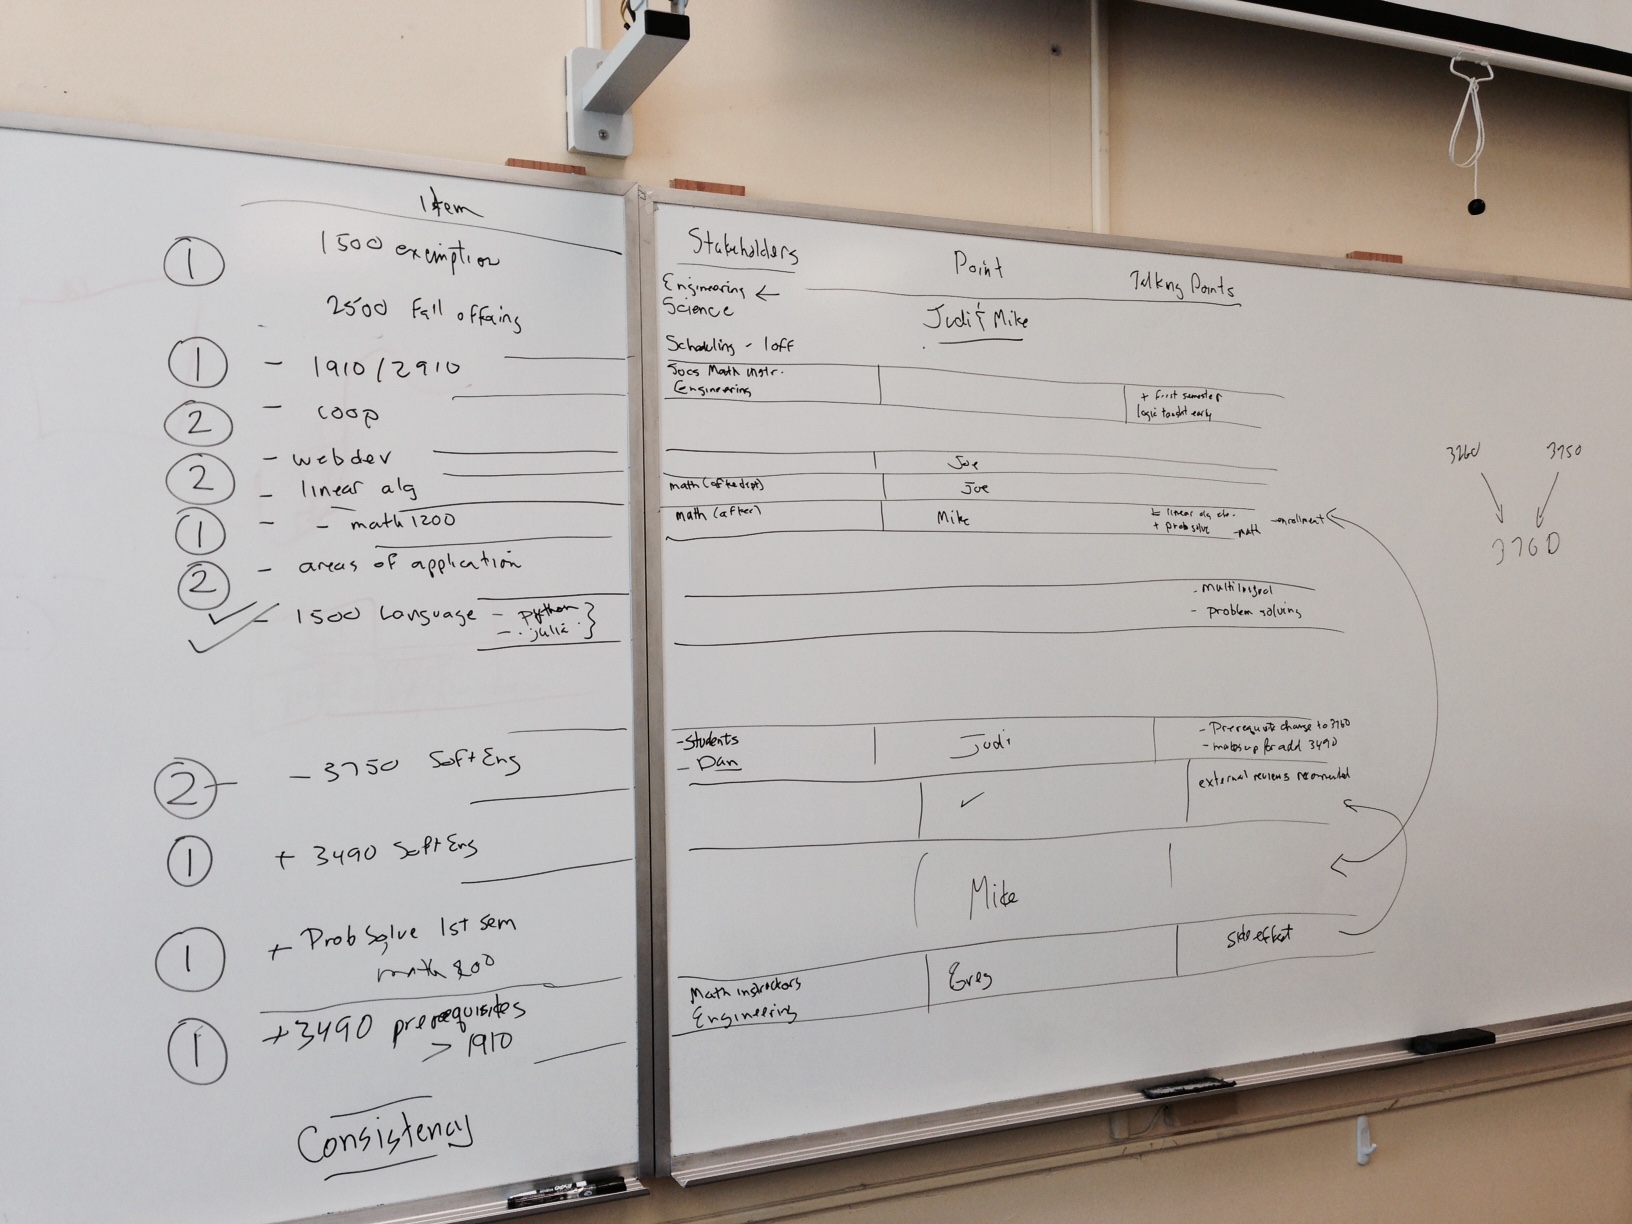 Item
1 1500 exemption
2500 Fall offering
1 - 1910/2910
2 - coop
2 - webdev
- linear alg
1 - - math 1200
2 - areas of application
- 1500 Language - python
- julia }
2 - 3750 Soft Eng
1 + 3490 Soft Eng
1 + Prob Solve 1st sem
math 200
1 +3490 prerequisites
> 1910
Consistency
Stakeholders Point Talking Points
Engineering ←
Science Judi + Mike
Scheduling - 1 off
Math instr.
Engineering + first semester
logic taught early
Joe
math (after dept) Joe
math (after) Mike linear alg
+ prob solve - math - enrollment
- problem solving
- Students Judi - Prerequisite change to 3760
- Dan - makes up for add 3490
✓ external reviews recommended
Mike
side effect
Math instructors Greg
Engineering
3260 3750
3760